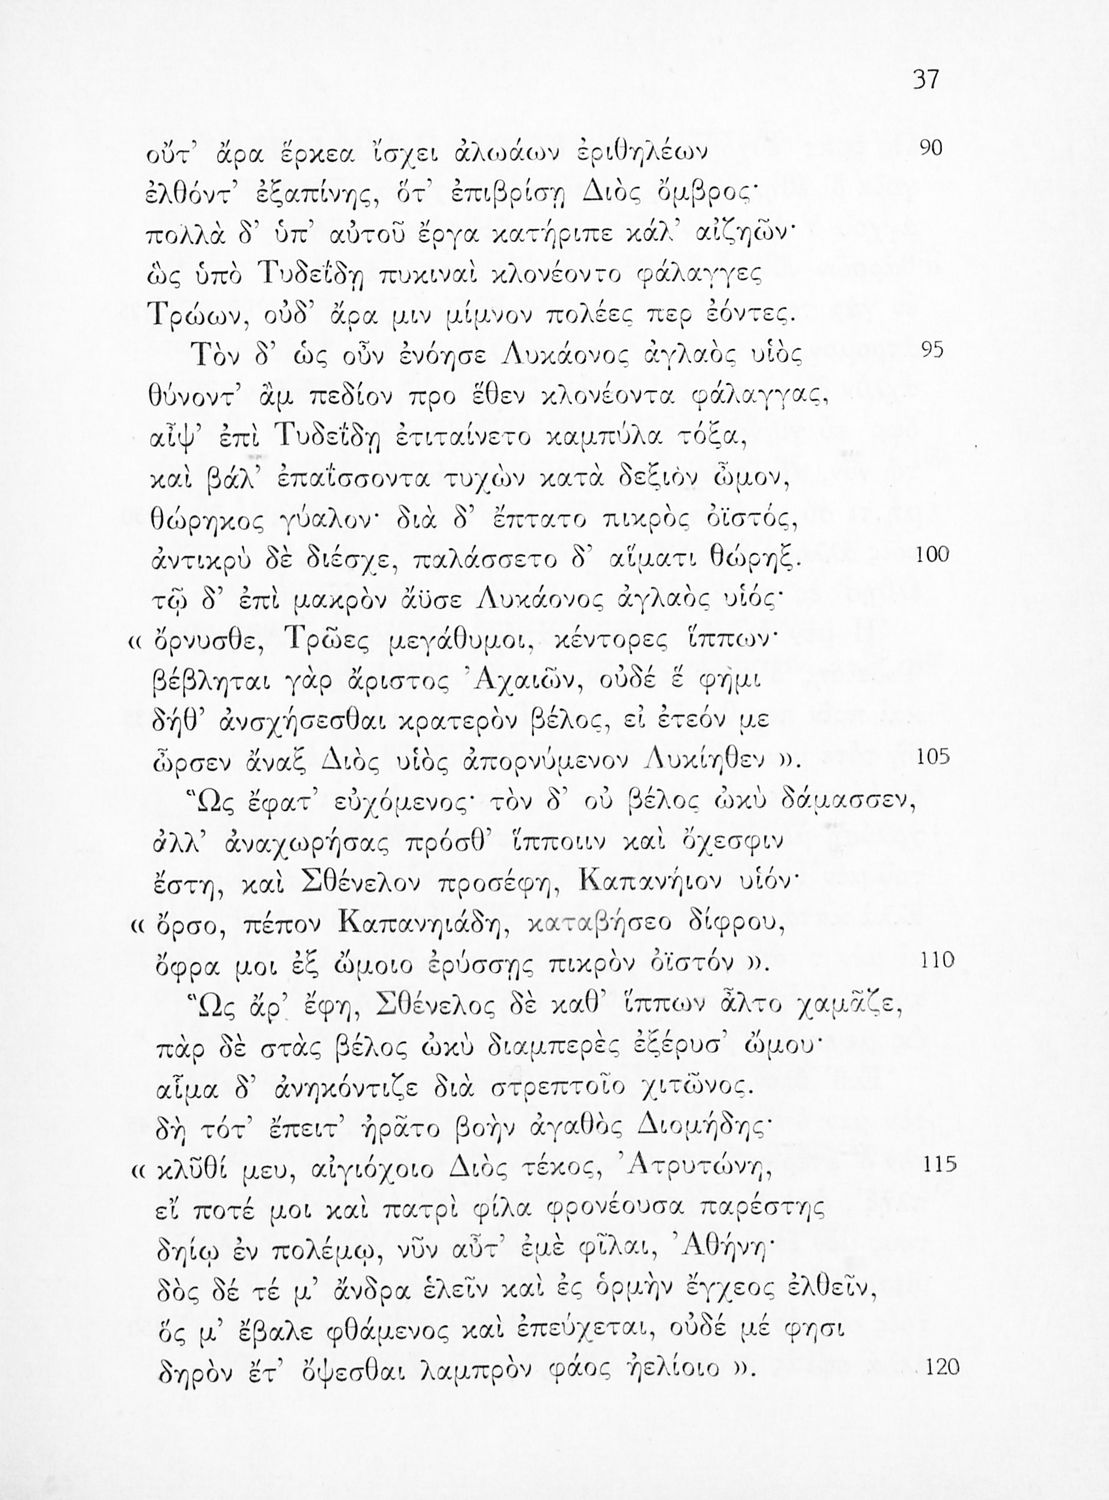 37
οὔτ’ ἄρα ἕρκεα ἴσχει ἀλωάων ἐριθηλέων 90
ἐλθόντ’ ἐξαπίνης, ὅτ’ ἐπιβρίσῃ Διὸς ὄμβρος·
πολλὰ δ’ ὑπ’ αὐτοῦ ἔργα κατήριπε κάλ’ αἰζηῶν·
ὣς ὑπὸ Τυδεΐδῃ πυκιναὶ κλονέοντο φάλαγγες
Τρώων, οὐδ’ ἄρα μιν μίμνον πολέες περ ἐόντες.
Τὸν δ’ ὡς οὖν ἐνόησε Λυκάονος ἀγλαὸς υἱὸς 95
θύνοντ’ ἂμ πεδίον προ ἕθεν κλονέοντα φάλαγγας,
αἶψ’ ἐπὶ Τυδεΐδῃ ἐτιταίνετο καμπύλα τόξα,
καὶ βάλ’ ἐπαΐσσοντα τυχὼν κατὰ δεξιὸν ὦμον,
θώρηκος γύαλον· διὰ δ’ ἔπτατο πικρὸς ὀϊστός,
ἀντικρὺ δὲ διέσχε, παλάσσετο δ’ αἵματι θώρηξ. 100
τῷ δ’ ἐπὶ μακρὸν ἄϋσε Λυκάονος ἀγλαὸς υἱός·
« ὄρνυσθε, Τρῶες μεγάθυμοι, κέντορες ἵππων·
βέβληται γὰρ ἄριστος Ἀχαιῶν, οὐδέ ἕ φημι
δήθ’ ἀνσχήσεσθαι κρατερὸν βέλος, εἰ ἐτεόν με
ὦρσεν ἄναξ Διὸς υἱὸς ἀπορνύμενον Λυκίηθεν ». 105
Ὣς ἔφατ’ εὐχόμενος· τὸν δ’ οὐ βέλος ὠκὺ δάμασσεν,
ἀλλ’ ἀναχωρήσας πρόσθ’ ἵπποιιν καὶ ὄχεσφιν
ἔστη, καὶ Σθένελον προσέφη, Καπανήιον υἱόν·
« ὄρσο, πέπον Καπανηιάδη, καταβήσεο δίφρου,
ὄφρα μοι ἐξ ὤμοιο ἐρύσσῃς πικρὸν ὀϊστόν ». 110
Ὣς ἄρ’ ἔφη, Σθένελος δὲ καθ’ ἵππων ἆλτο χαμᾶζε,
πὰρ δὲ στὰς βέλος ὠκὺ διαμπερὲς ἐξέρυσ’ ὤμου·
αἷμα δ’ ἀνηκόντιζε διὰ στρεπτοῖο χιτῶνος.
δὴ τότ’ ἔπειτ’ ἠρᾶτο βοὴν ἀγαθὸς Διομήδης·
« κλῦθί μευ, αἰγιόχοιο Διὸς τέκος, Ἀτρυτώνη, 115
εἴ ποτέ μοι καὶ πατρὶ φίλα φρονέουσα παρέστης
δηίῳ ἐν πολέμῳ, νῦν αὖτ’ ἐμὲ φῖλαι, Ἀθήνη·
δὸς δέ τέ μ’ ἄνδρα ἑλεῖν καὶ ἐς ὁρμὴν ἔγχεος ἐλθεῖν,
ὅς μ’ ἔβαλε φθάμενος καὶ ἐπεύχεται, οὐδέ μέ φησι
δηρὸν ἔτ’ ὄψεσθαι λαμπρὸν φάος ἠελίοιο ». 120